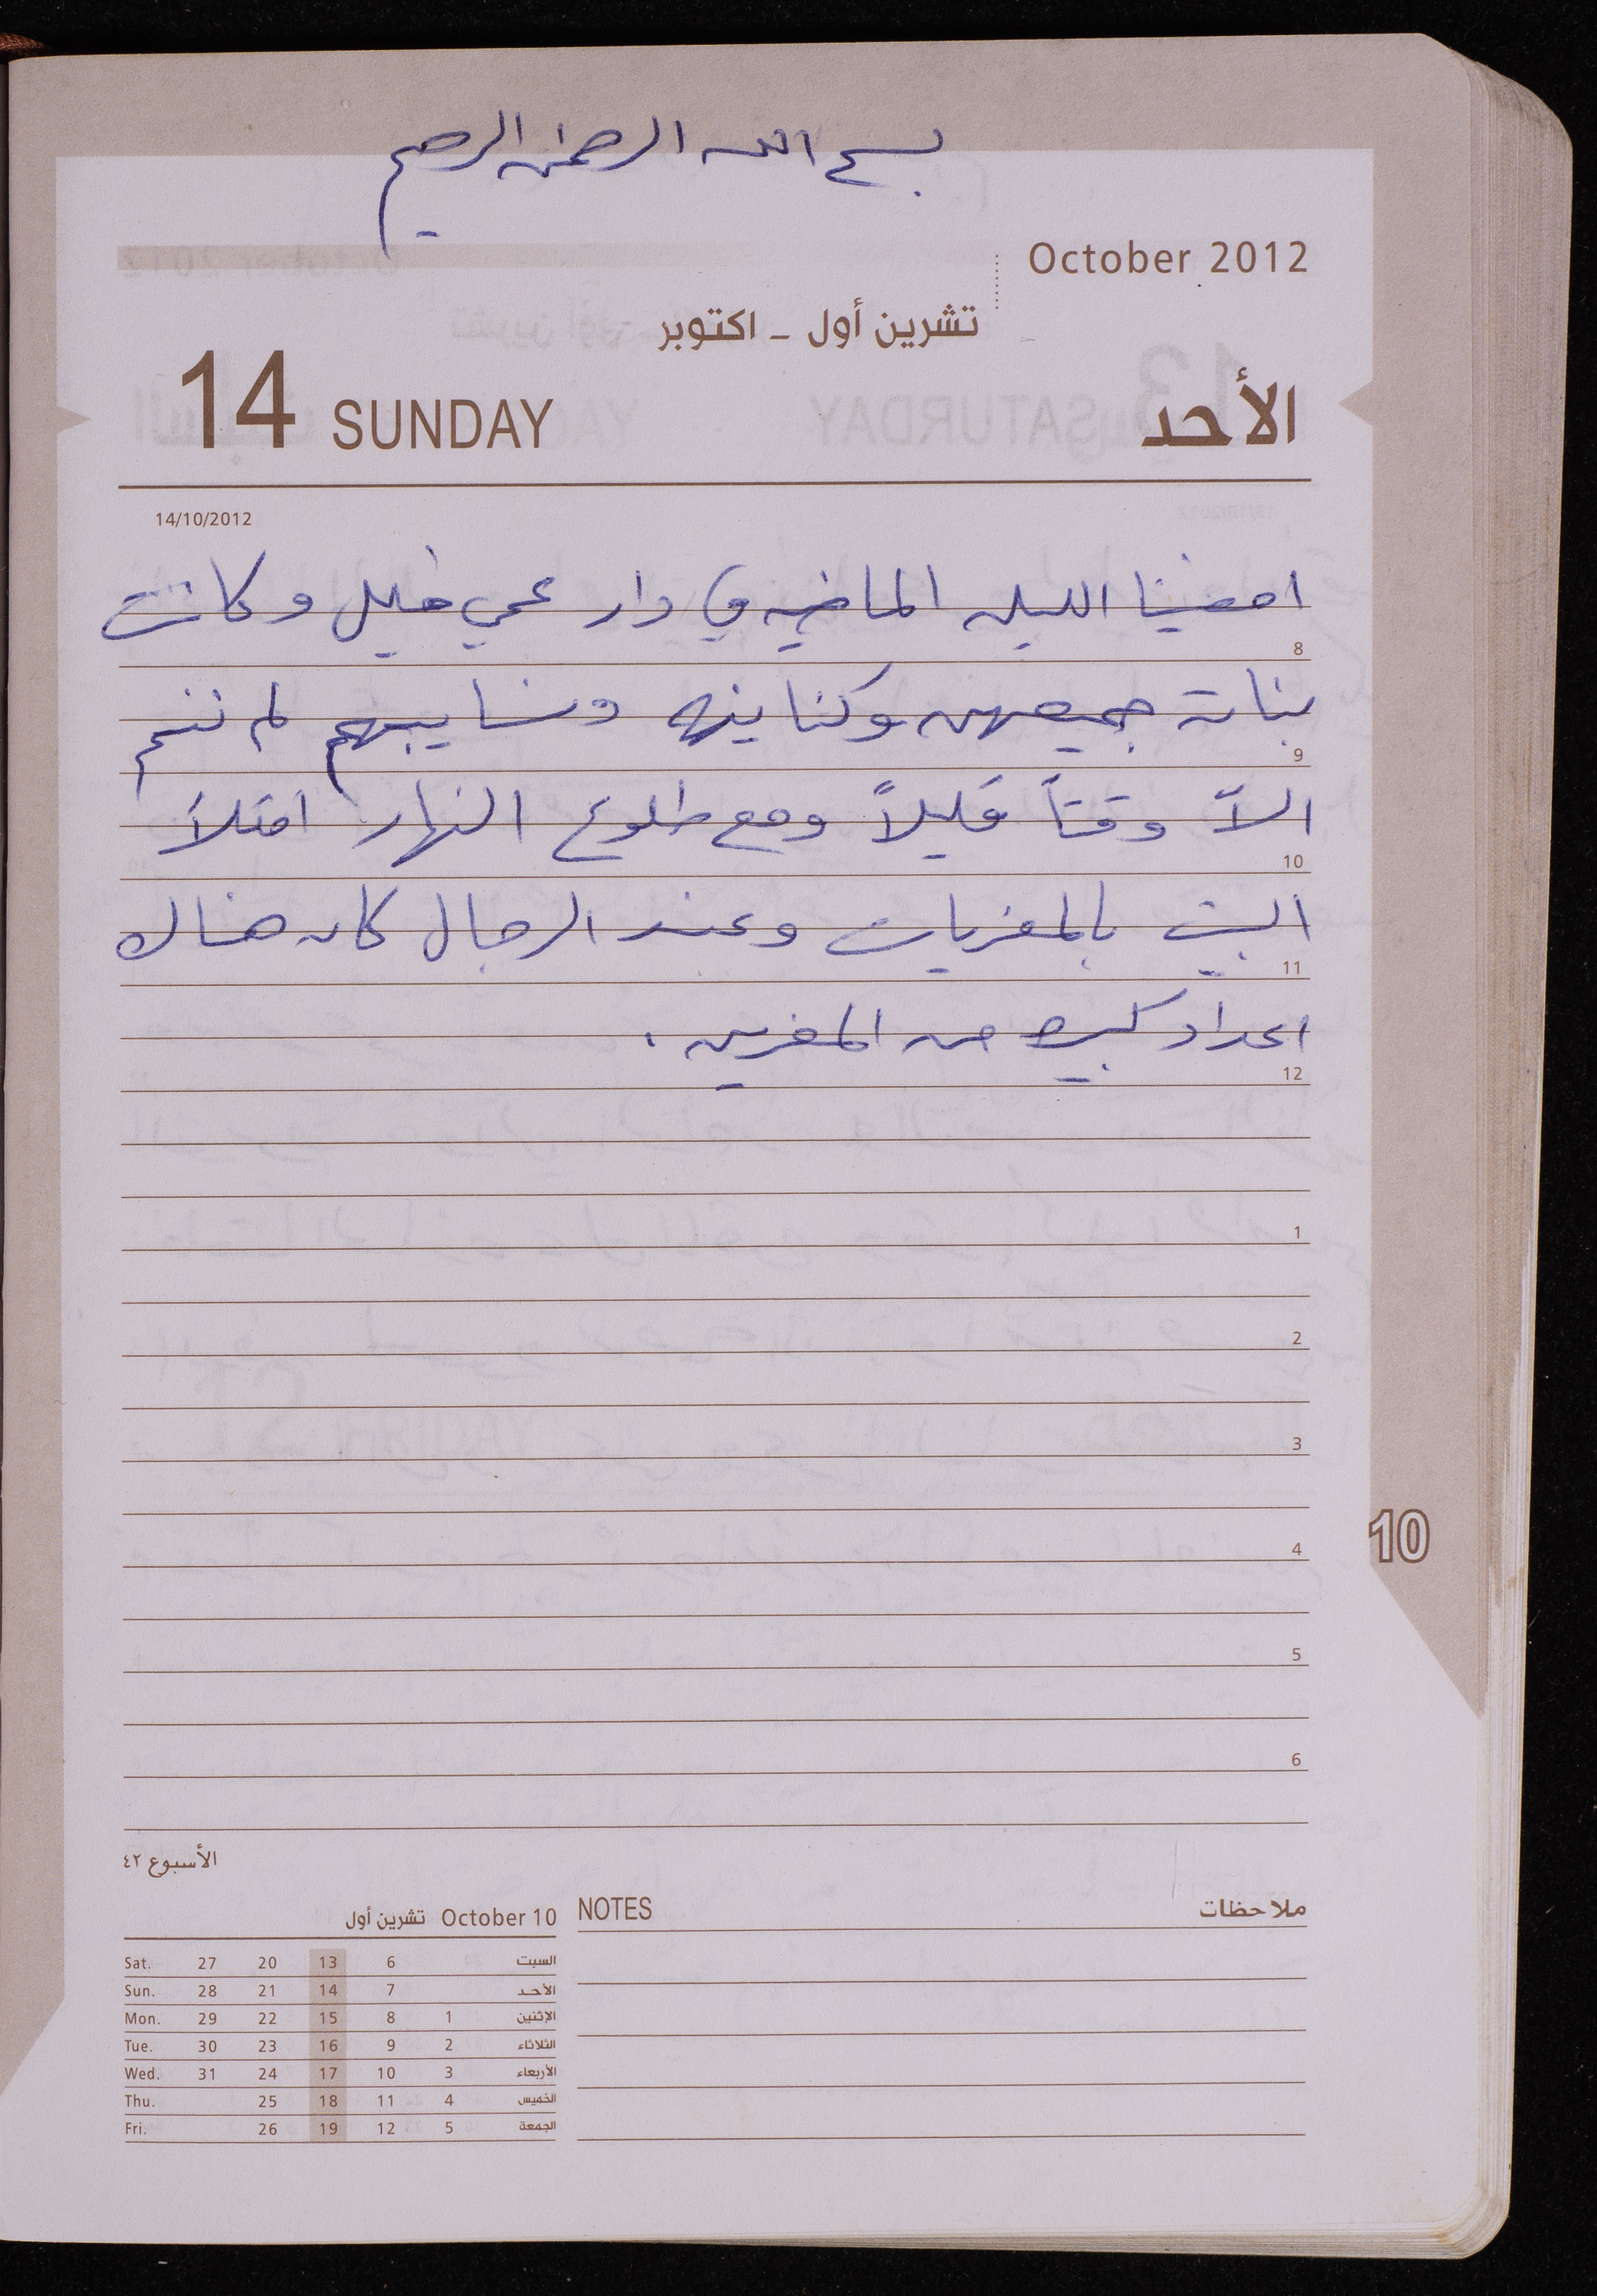 بسم الله الرحمن الرحيم
October 2012
تشرين أول - اكتوبر
14 SUNDAY الأحد
14/10/2012
امضينا الليله الماضيه في دار عمي خليل وكانت
8
بناته جميعهن وكناينه ونسايبهم لم ننم
9
الاّ وقتاً قليلاً ومع طلوع النهار امتلأ
10
البيت بالمعزيات وعند الرجال كان هناك
11
اعداد كبيره من المعزين .
12
1
2
3
10
4
5
6
الأسبوع ٤٢
October 10 تشرين أول
NOTES ملاحظات
Sat. 27 20 13 6 السبت
Sun. 28 21 14 7 الأحد
Mon. 29 22 15 8 1 الإثنين
Tue. 30 23 16 9 2 الثلاثاء
Wed. 31 24 17 10 3 الأربعاء
Thu. 25 18 11 4 الخميس
Fri. 26 19 12 5 الجمعة